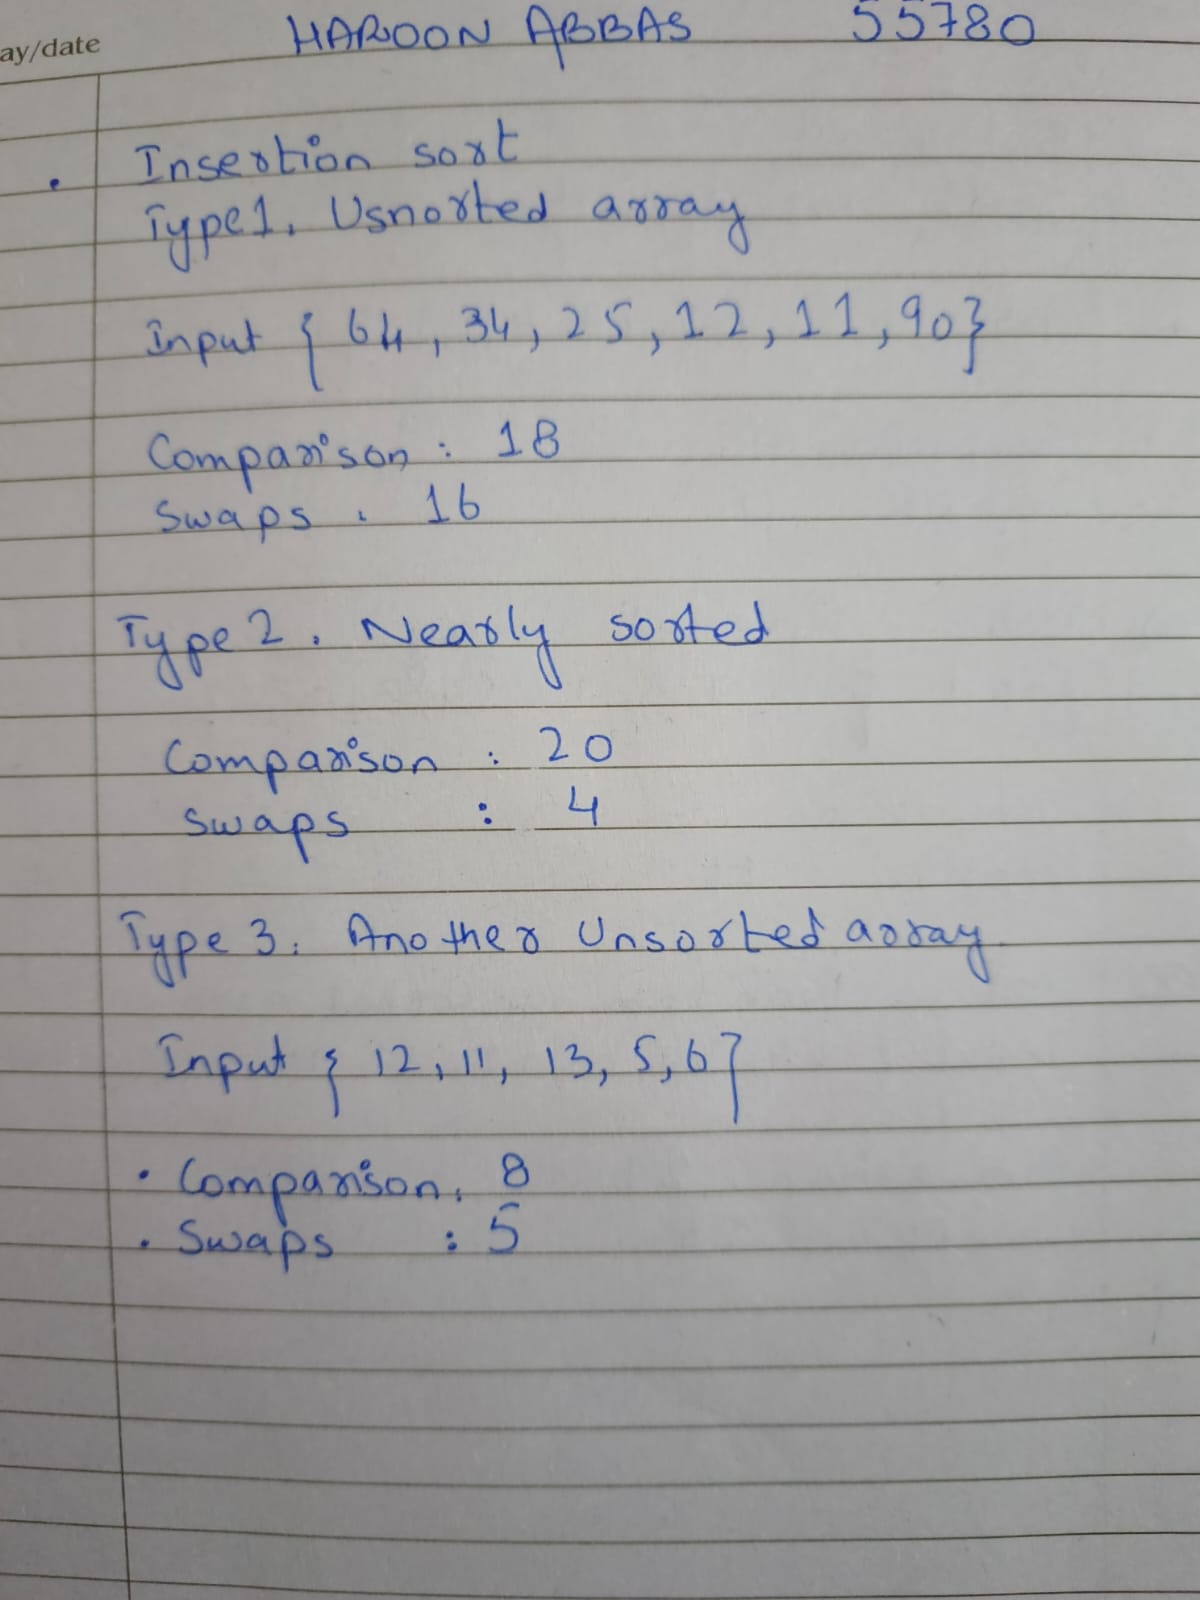 ay/date
HAROON ABBAS 55780
Insertion sort
Type1. Usnorted array
Input { 64, 34, 25, 12, 11, 90}
Comparison : 18
Swaps . 16
Type 2. Nearly sorted
Comparison : 20
Swaps : 4
Type 3. Another Unsorted array
Input { 12, 11, 13, 5, 6}
• Comparison. 8
• Swaps : 5